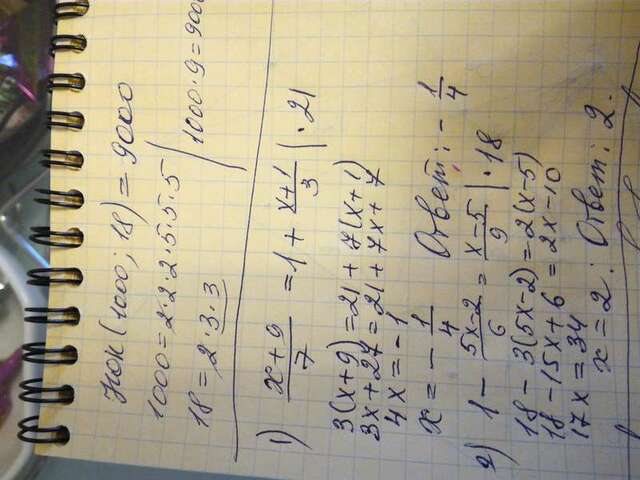 НОК (1000; 18) = 9000
1000 = 2·2·2·5·5·5 | 1000·9=9000
18 = 2·3·3
1) x+9/7 = 1 + x+1/3 | ·21
3(x+9) = 21 + 7(x+1)
3x+27 = 21 + 7x + 7
4x = -1
x = -1/4 Ответ: -1/4
2) 1 - 5x-2/6 = x-5/9 | ·18
18 - 3(5x-2) = 2(x-5)
18 - 15x + 6 = 2x - 10
17x = 34
x = 2. Ответ: 2.